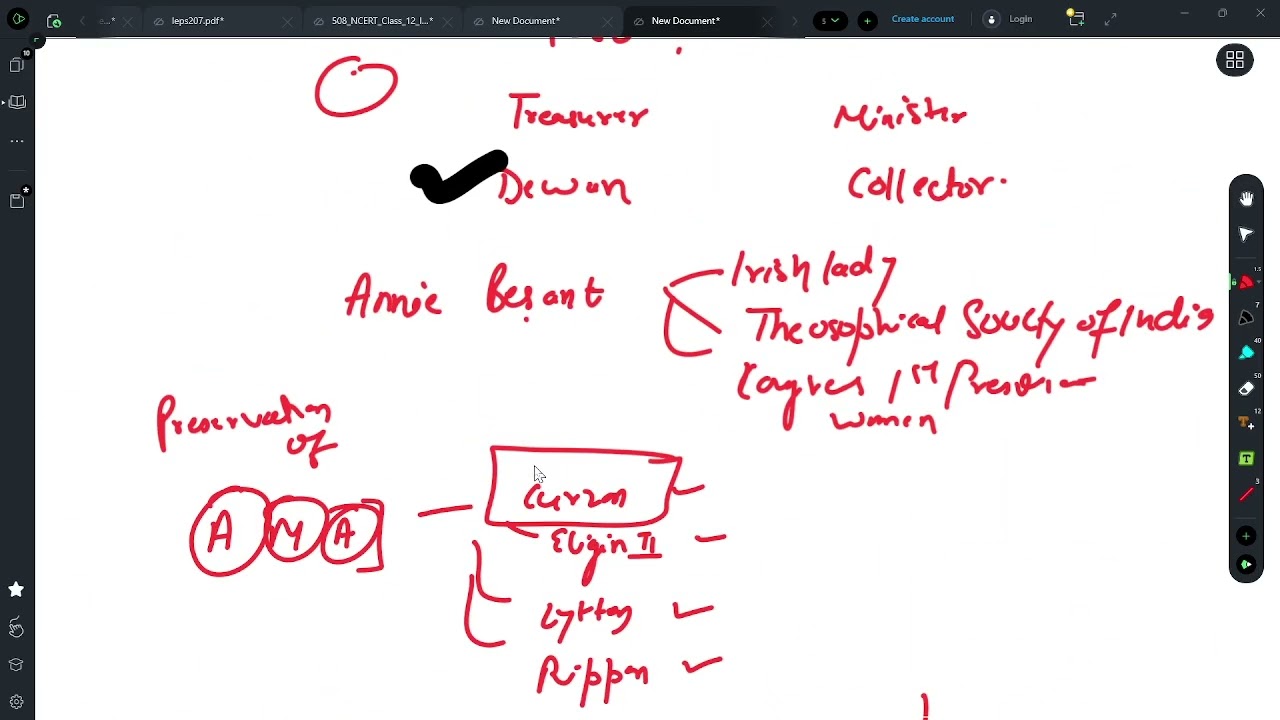 e...* leps207.pdf* 508_NCERT_Class_12_I...* New Document* New Document* s Create account Login
10
Treasurer Minister
Dewan Collector.
Annie Besant Irish lady
Theosophical Society of India
Congres 1st Presiden
women
Preservation
of
A M A Curzon
Eligin II
Lytton
Rippon
1.5
7
40
50
12
3